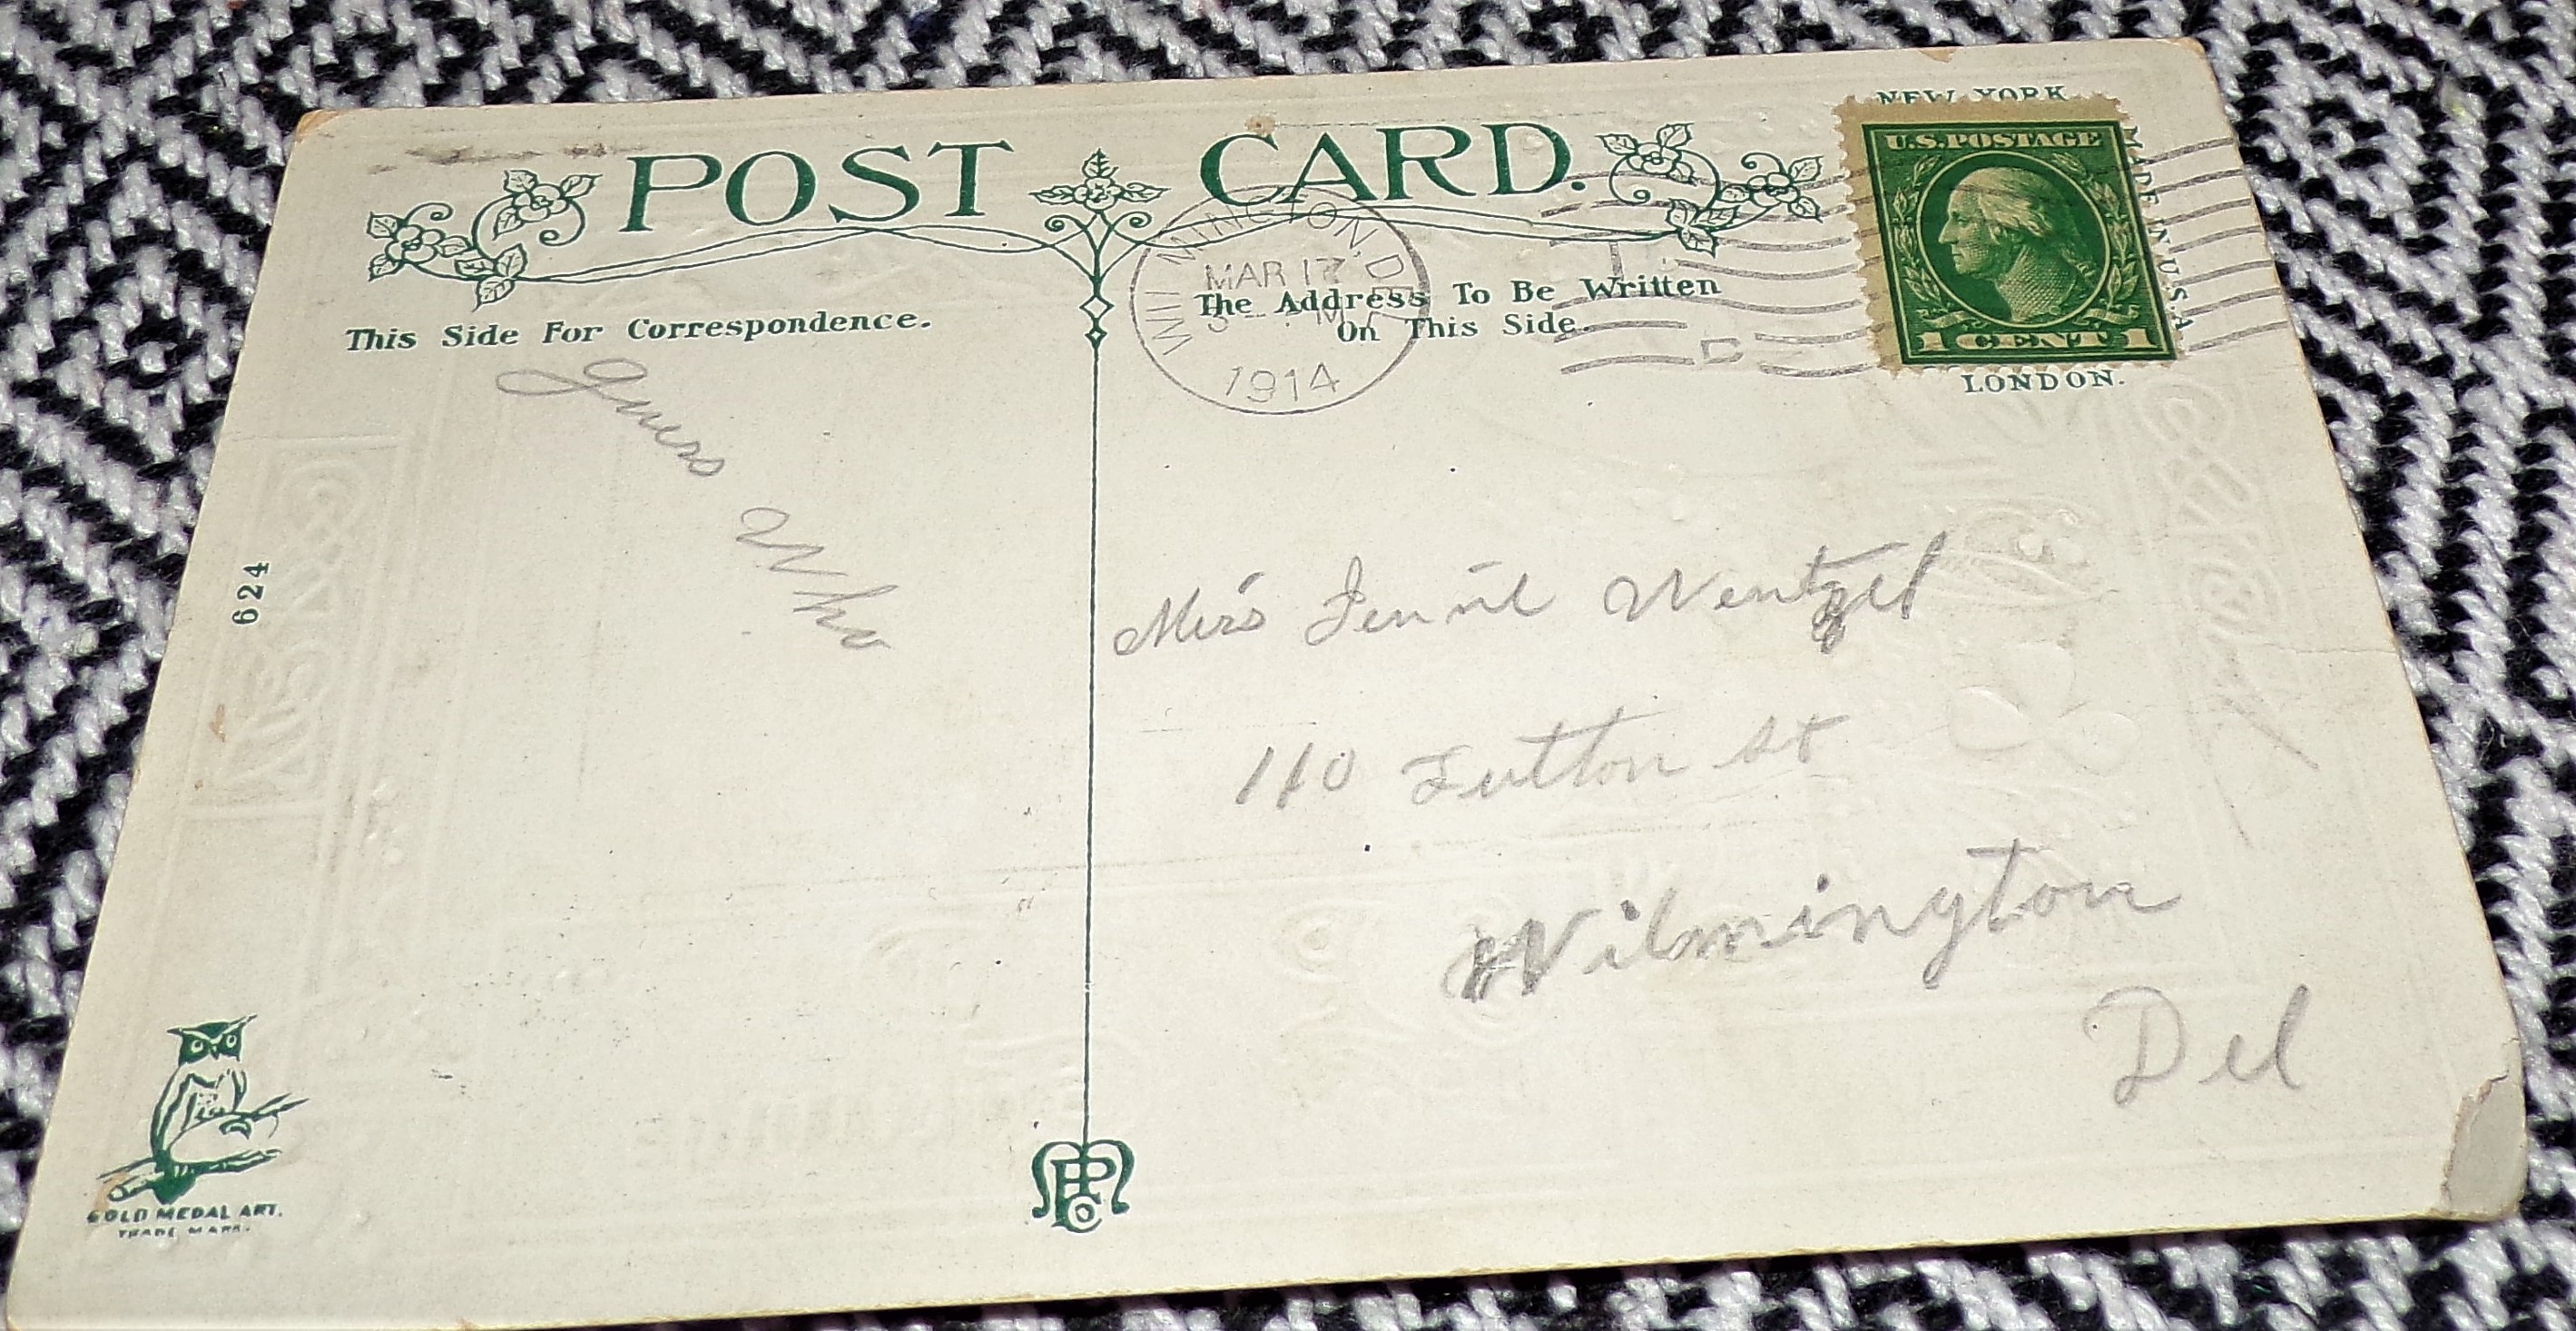 POST CARD.
NEW YORK
U.S. POSTAGE
1 CENT 1
MADE IN U.S.A
LONDON.
WILMINGTON, DEL
MAR 17
1914
This Side For Correspondence.
The Address To Be Written
On This Side.
Guess Who
Miss Jennie Wentzel
110 Sutton st
Wilmington
Del
624
GOLD MEDAL ART.
TRADE MARK.